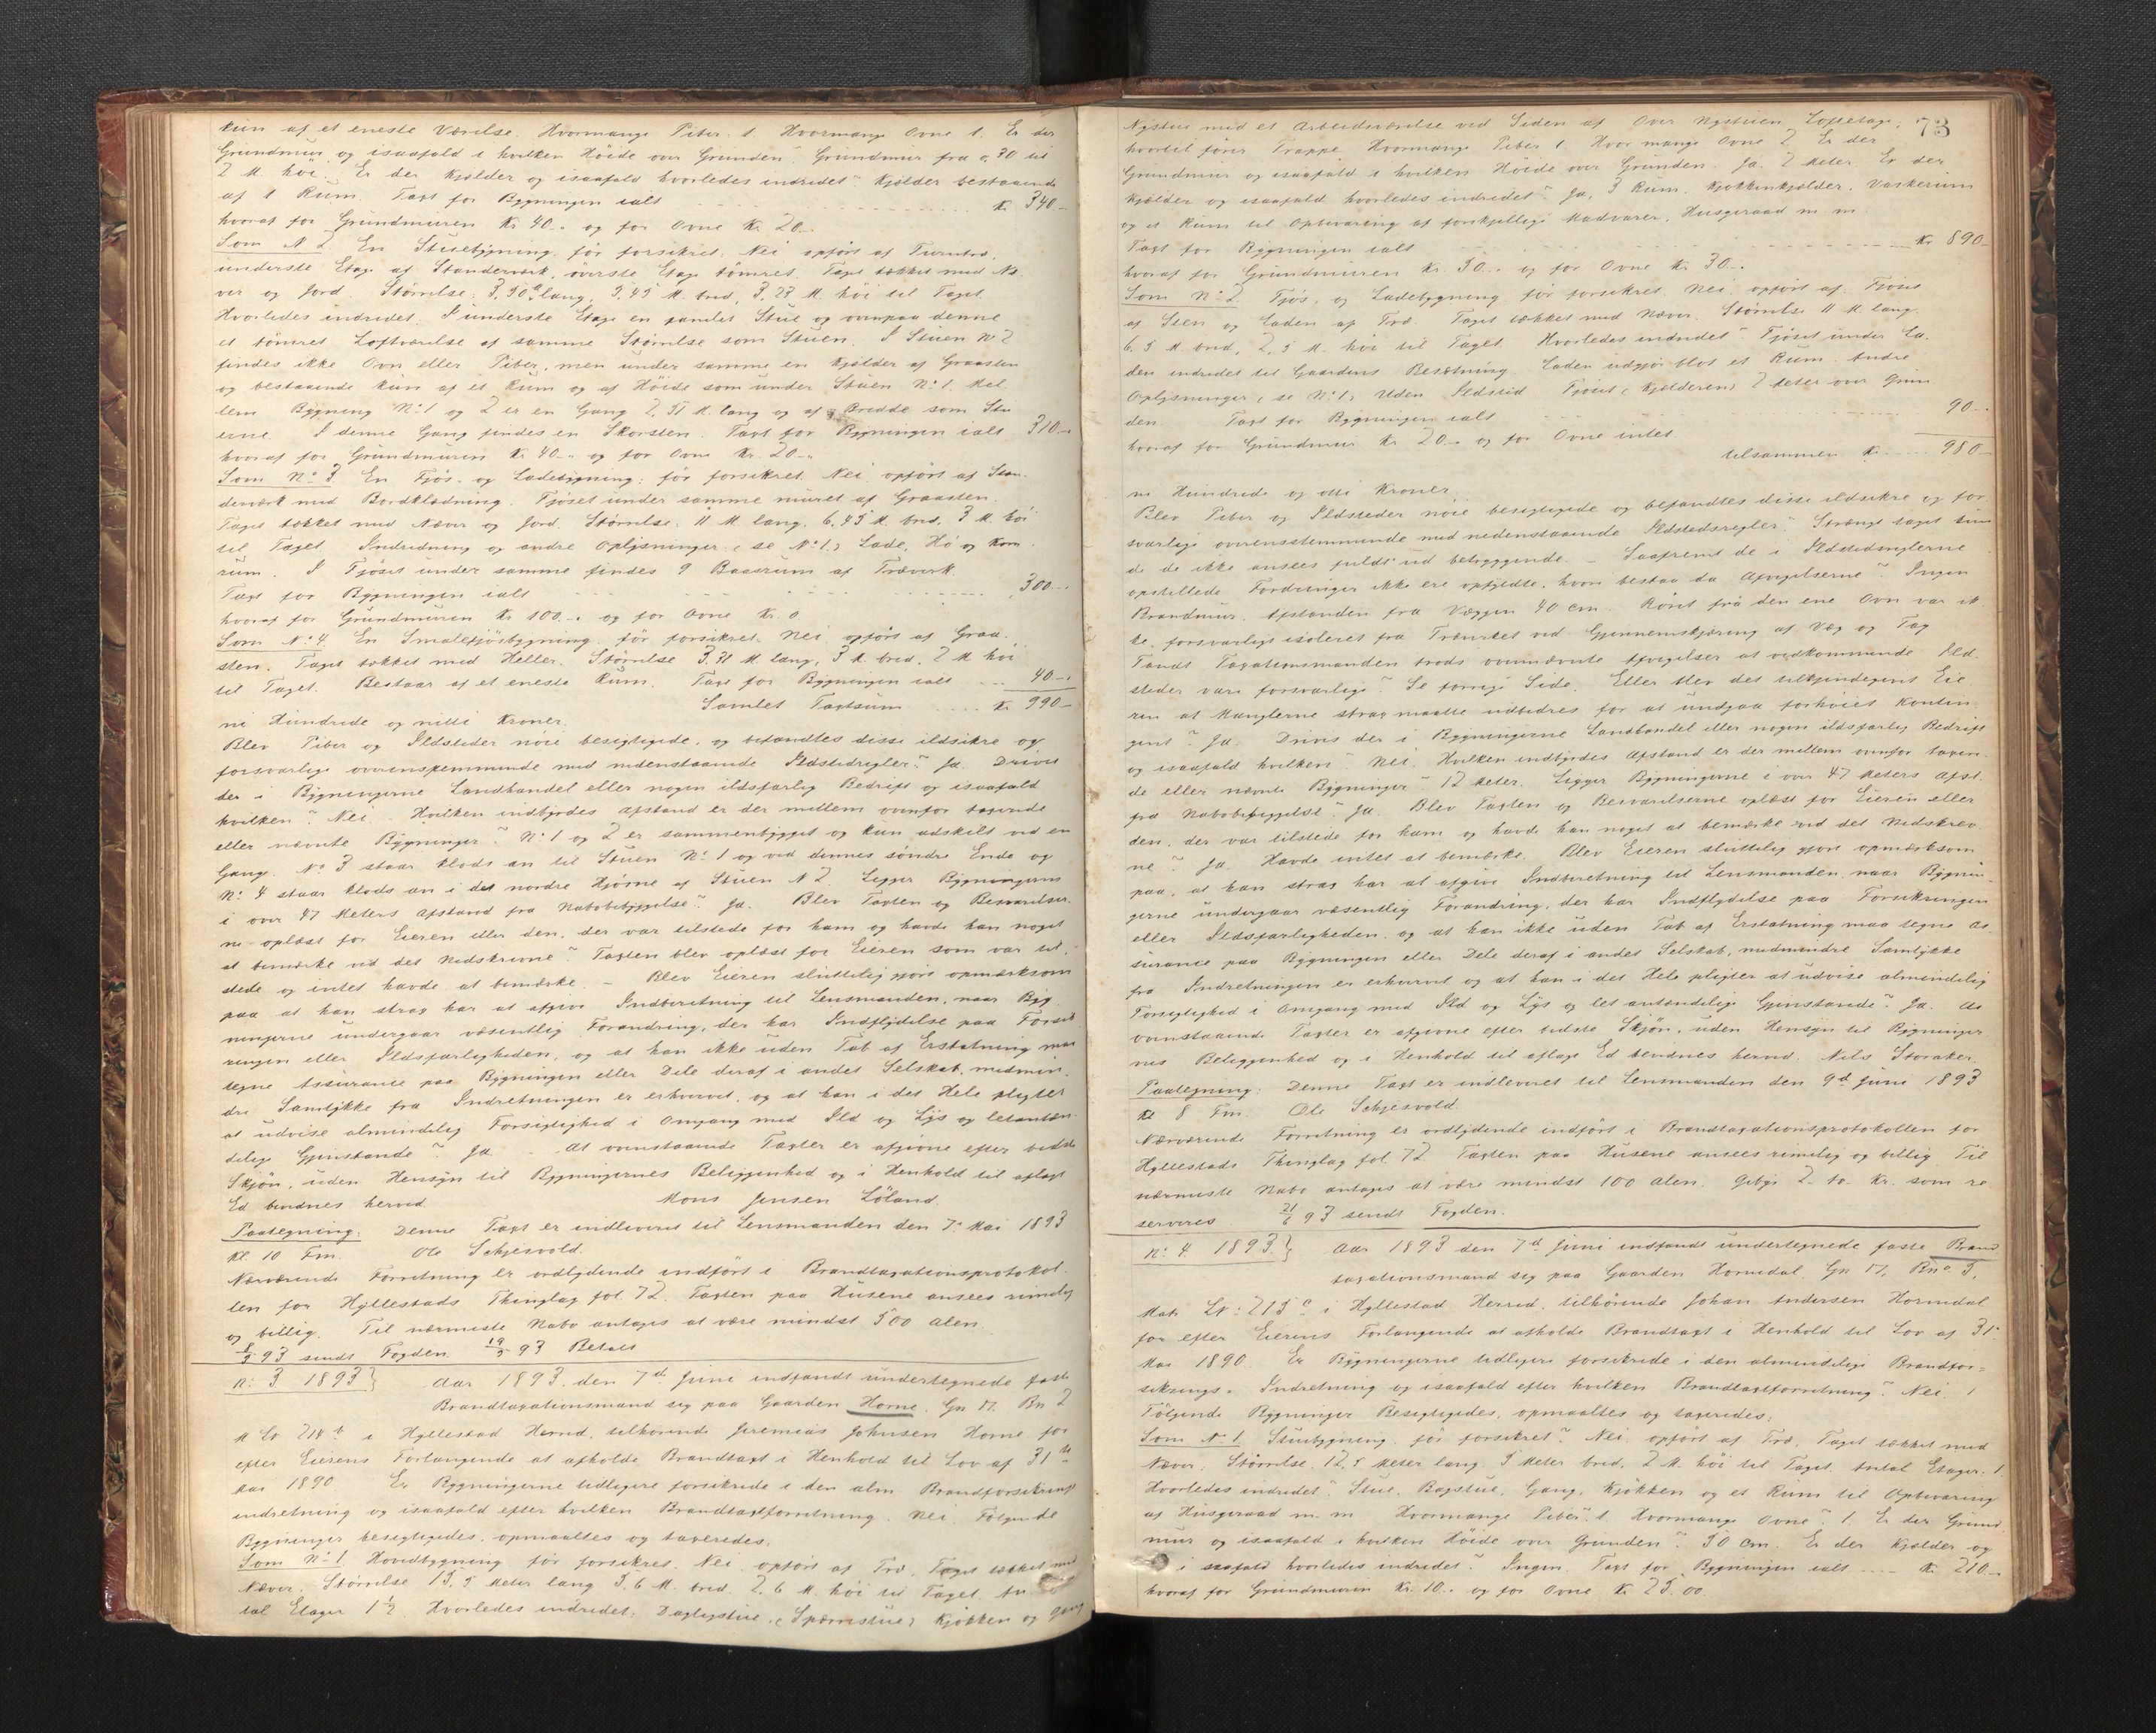 kun af et eneste Værelse. Hvormange Piber. 1. Hvormange Ovne 1. Er der
Grundmur og isaafald i hvilken Høide over Grunden. Grundmur fra 0,30 til
2 M. høi. Er der Kjælder og isaafald hvorledes indredet? Kjælder bestaaende
af 1 Rum. Taxt for Bygningen ialt Kr. 340-
hvoraf for Grundmuren Kr 40.. og for Ovne Kr. 20..
Som N 2. En Stuebygning før forsikret. Nei opført af Furutræ,
underste Etage af Standerværk, øverste Etage tømret. Taget tækket med Næ-
ver og Jord. Størrelse: 3,50 M. lang, 3,45 M. bred, 3,23 M. høi til Taget.
Hvorledes indredet. I underste Etage en panelet Stue og ovenpaa denne
et tømret Loftværelse af samme Størrelse som Stuen. I Stuen No 2
findes ikke Ovn eller Piber, men under samme en Kjælder af Graasten
og bestaaende kun af et Rum og af Høide som under Stuen No 1. Mel-
lem Bygning No 1 og 2 er en Gang 2,51 M. lang og af Bredde som Stu-
erne. I denne Gang findes en Skorsten. Taxt for Bygningen ialt 310-
hvoraf for Grundmuren Kr. 40.. og for Ovne Kr. 20..
Som No 3. En Fjøs- og Ladebygning: før forsikret. Nei. opført af Stan-
derværk med Bordklædning. Fjøset under samme muret af Graasten.
Taget tækket med Næver og Jord. Størrelse: 11 M. lang, 6,45 M. bred, 3 M. høi
til Taget. Indredning og andre Oplysninger (se No 1.) Lade, Hø og Korn-
rum. I Fjøset under samme findes 9 Baasrum af Træverk.
Taxt for Bygningen ialt 300-.
hvoraf for Grundmuren Kr 100.. og for Ovne Kr. 0
Som No 4. En Smalefjøsbygning før forsikret. Nei opført af Graa-
sten. Taget tækket med Heller. Størrelse 3,31 M. lang, 3 M. bred. 2 M. høi
til Taget. Bestaar af et eneste Rum. Taxt for Bygningen ialt 40-.
Samlet Taxtsum Kr. 990-
ni Hundrede og nitti Kroner.
Blev Piber og Ildsteder nøie besigtigede, og befandtes disse ildsikre og
forsvarlige overensstemmende med nedenstaaende Ildstedregler? Ja. Drives
der i Bygningerne Landhandel eller nogen ildsfarlig Bedrift og isaafald
hvilken? Nei. Hvilken indbyrdes Afstand er der mellem ovenfor taxerede
eller nævnte Bygninger? No 1 og 2 er sammenbygget og kun adskilt ved en
Gang. No 3 staar klods an til Stuen No 1 og ved dennes søndre Ende og
No 4 staar klods an i det nordre Hjørne af Stuen N 2. Ligger Bygningerne
i over 47 Meters Afstand fra Nabobebyggelse? Ja. Blev Taxten og Besvarelser-
ne oplæst for Eieren eller den, der var tilstede for ham og havde han noget
at bemærke ved det Nedskrevne? Taxten blev oplæst for Eieren som var til-
stede og intet havde at bemærke. - Blev Eieren sluttelig gjort opmærksom
paa at han strax har at afgive Indberetning til Lensmanden, naar Byg-
ningerne undergaar væsentlig Forandring, der har Indflydelse paa Forsik-
ringen eller Ildsfarligheden, og at han ikke uden Tab af Erstatning maa
tegne Assurance paa Bygningen eller Dele deraf i andet Selskab, medmin-
dre Samtykke fra Indretningen er erhvervet, og at han i det Hele pligter
at udvise almindelig Forsigtighed i Omgang med Ild og Lys og letantæn-
delige Gjenstande? Ja. At ovenstaaende Taxter er afgivne efter bedste
Skjøn, uden Hensyn til Bygningernes Beliggenhed og i Henhold til aflagt
Ed bevidnes herved. Mons Jensen Löland.
Paategning: Denne Taxt er indleveret til Lensmanden den 7. Mai 1893
Kl. 10 Fm. Ole Schjesvold.
Nærværende Forretning er ordlydende indført i Brandtaxationsprotokol-
len for Hyllestads Thinglag fol. 72. Taxten paa Husene ansees rimelig
og billig. Til nærmeste Nabo antages at være mindst 500 Alen.
93 sendt Fogden. 93 Betalt
No 3 1893} Aar 1893. den 7d Juni indfandt undertegnede faste
Brandtaxationsmand sig paa Gaarden Horne, Gn 17. Bn 2
M Lv 214 b i Hyllestad Herred, tilhørende Jeremias Johnsen Horne for
efter Eierens Forlangende at afholde Brandtaxt i Henhold til Lov af 31te
Mai 1890. Er Bygningerne tidligere forsikrede i den alm. Brandforsikrings
indretning og isaafald efter hvilken Brandtaxtforretning. Nei. Følgende
Bygninger besigtigedes, opmaaltes og taxeredes.
Som No 1. Hovedbygning før forsikret. Nei. opført af Træ. Taget tækket med
Næver. Størrelse 13,5 Meter lang 5,6 M. bred, 2,6 M. høi til Taget. An-
tal Etager 1½. Hvorledes indredet: Dagligstue, (Spærrestue) Kjøkken og Gang
73
Nystue med et Arbeidsværelse ved Siden af. Over Nystuen Loftetage,
hvortil fører Trappe. Hvormange Piber 1. Hvor mange Ovne 2. Er der
Grundmur og isaafald i hvilken Høide over Grunden. Ja. 2 Meter. Er der
Kjælder og isaafald hvorledes indredet? Ja, 3 Rum, Kjøkkenkjælder, Vaskerum
og et Rum til Opbevaring af forskjellige Madvarer, Husgeraad m. m.
Taxt for Bygningen ialt Kr. 890-
hvoraf for Grundmuren Kr. 50.. og for Ovne Kr 30..
Som No 2. Fjøs. og Ladebygning før forsikret Nei. opført af. Fjøset
af Sten og Laden af Træ. Taget tækket med Næver. Størrelse 11 M. lang
6,5 M. bred, 2,5 M. høi til Taget. Hvorledes indredet? Fjøset under La-
den indredet til Gaardens Besætning. Laden udgjør blot et Rum. Andre
Oplysninger, (se No 1) Uden Ildsted. Fjøset (Kjælderen) 2 Meter over Grun-
den. Taxt for Bygningen ialt 90-.
hvoraf for Grundmur Kr 20.. og for Ovne intet
tilsammen Kr. 980-
ni Hundrede og otti Kroner.
Blev Piber og Ildsteder nøie besigtigede og befandtes disse ildsikre og for-
svarlige overensstemmende med nedenstaaende Ildstedsregler? Strengt taget kun-
de de ikke ansees fuldt ud betryggende. - Saafremt de i Ildstedreglerne
opstillede Fordringer ikke ere opfyldte, hvori bestaa da Afvigelserne? Ingen
Brandmur. Afstanden fra Væggen 40 cm. Røret fra den ene Ovn var ik-
ke forsvarligt isoleret fra Træverket ved Gjennemskjæring af Væg og Tag
Fandt Taxationsmanden trods ovennævnte Afvigelser at vedkommende Ild-
steder vare forsvarlige? Se forrige Side. Eller blev det tilkjendegivet Eie-
ren at Manglerne strax maatte udbedres for at undgaa forhøiet Kontin-
gent? Ja. Drives der i Bygningerne Landhandel eller nogen ildsfarlig Bedrift
og isaafald hvilken? Nei. Hvilken indbyrdes Afstand er der mellem ovenfor taxere-
de eller nævnte Bygninger? 12 Meter. Ligger Bygningerne i over 47 Meters Afst.
fra Nabobebyggelse? Ja. Blev Taxten og Besvarelserne oplæst for Eieren eller
den, der var tilstede for ham og havde han noget at bemærke ved det Nedskrev-
ne? Ja. Havde intet at bemærke. Blev Eieren sluttelig gjort opmærksom
paa, at han strax har at afgive Indberetning til Lensmanden, naar Bygnin-
gerne undergaar væsentlig Forandring, der har Indflydelse paa Forsikringen
eller Ildsfarligheden, og at han ikke uden Tab af Erstatning maa tegne As-
surance paa Bygningen eller Dele deraf i andet Selskab, medmindre Samtykke
fra Indretningen er erhvervet og at han i det Hele pligter at udvise almindelig
Forsigtighed i Omgang med Ild og Lys og let antændelige Gjenstande? Ja. At
ovenstaaende Taxter er afgivne efter bedste Skjøn, uden Hensyn til Bygninger-
nes Beliggenhed og i Henhold til aflagt Ed bevidnes herved. Nils Storaker.
Paategning: Denne Taxt er indleveret til Lensmanden den 9d Juni 1893
Kl 8 Fm. Ole Schjesvold.
Nærværende Forretning er ordlydende indført i Brandtaxationsprotokollen for
Hyllestads Thinglag fol. 72. Taxten paa Husene ansees rimelig og billig. Til
nærmeste Nabo antages at være mindst 100 Alen. Gebyr 2- to- Kr. som re-
serveres. 21/6 93 sendt Fogden.
No 4. 1893} Aar 1893 den 7d Juni indfandt undertegnede faste Brand
taxationsmand sig paa Gaarden Hornedal. Gn 17, Bno 3,
Matr Lv: 215 c i Hyllestad Herred, tilhørende Johan Andersen Hornedal
for efter Eierens Forlangende at afholde Brandtaxt i Henhold til Lov af 31-
Mai 1890. Er Bygningerne tidligere forsikrede i den almindelige Brandfor=
sikrings- Indretning og isaafald efter hvilken Brandtaxtforretning? Nei.
Følgende Bygninger besigtigedes, opmaaltes og taxeredes:
Som N 1. Stuebygning. før forsikret? Nei. opført af Træ. Taget tækket med
Næver. Størrelse. 12,5 Meter lang. 5 Meter bred, 2 M. høi til Taget. Antal Etager: 1.
Hvorledes indredet? Stue, Bagstue, Gang, Kjøkken og et Rum til Opbevaring
af Husgeraad m. m. Hvormange Piber? 1 Hvormange Ovne? 1. Er der Grund-
mur og isaafald i hvilken Høide over Grunden? 50 cm. Er der Kjælder og
i saafald hvorledes indredet? Ingen. Taxt for Bygningen ialt Kr. 210-
hvoraf for Grundmuren Kr. 10.. og for Ovne Kr 25.00.